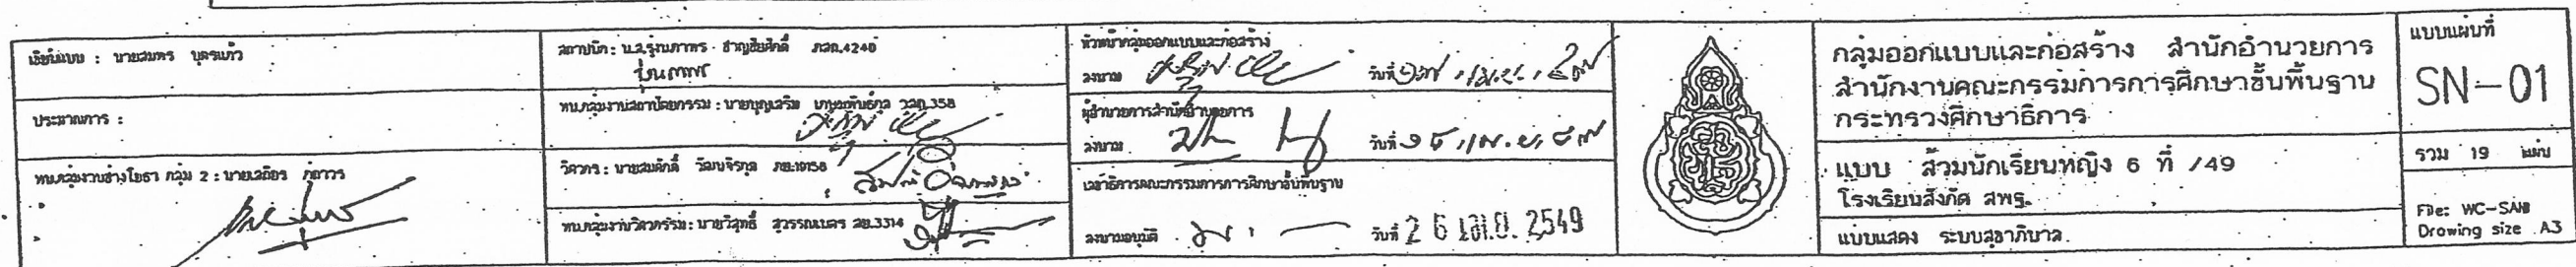 เขียนแบบ : นายสมพร บุตรแก้ว
ประมาณการ :
หน.กลุ่มงานช่างโยธา กลุ่ม 2 : นายเสถียร
สถาปนิก : น.ส.รุ่งนภาพร ชำญชัยศักดิ์ ภสถ.4240
หน.กลุ่มงานสถาปัตยกรรม : นายบุญเสริม วสถ.358
วิศวกร : นายสมศักดิ์ วัฒนจิรกุล ภย.19158
หน.กลุ่มงานวิศวกรรม : นายวิสุทธิ์ สุวรรณเนตร สย.3314
หัวหน้ากลุ่มออกแบบและก่อสร้าง
ลงนาม วันที่
ผู้อำนวยการสำนักอำนวยการ
ลงนาม วันที่
เลขาธิการคณะกรรมการการศึกษาขั้นพื้นฐาน
ลงนามอนุมัติ วันที่ 26 เม.ย. 2549
กลุ่มออกแบบและก่อสร้าง สำนักอำนวยการ
สำนักงานคณะกรรมการการศึกษาขั้นพื้นฐาน
กระทรวงศึกษาธิการ
แบบ ส้วมนักเรียนหญิง 6 ที่ /49
โรงเรียนสังกัด สพฐ.
แบบแสดง ระบบสุขาภิบาล
แบบแผ่นที่
SN-01
รวม 19 แผ่น
File: WC-SANI
Drawing size A3